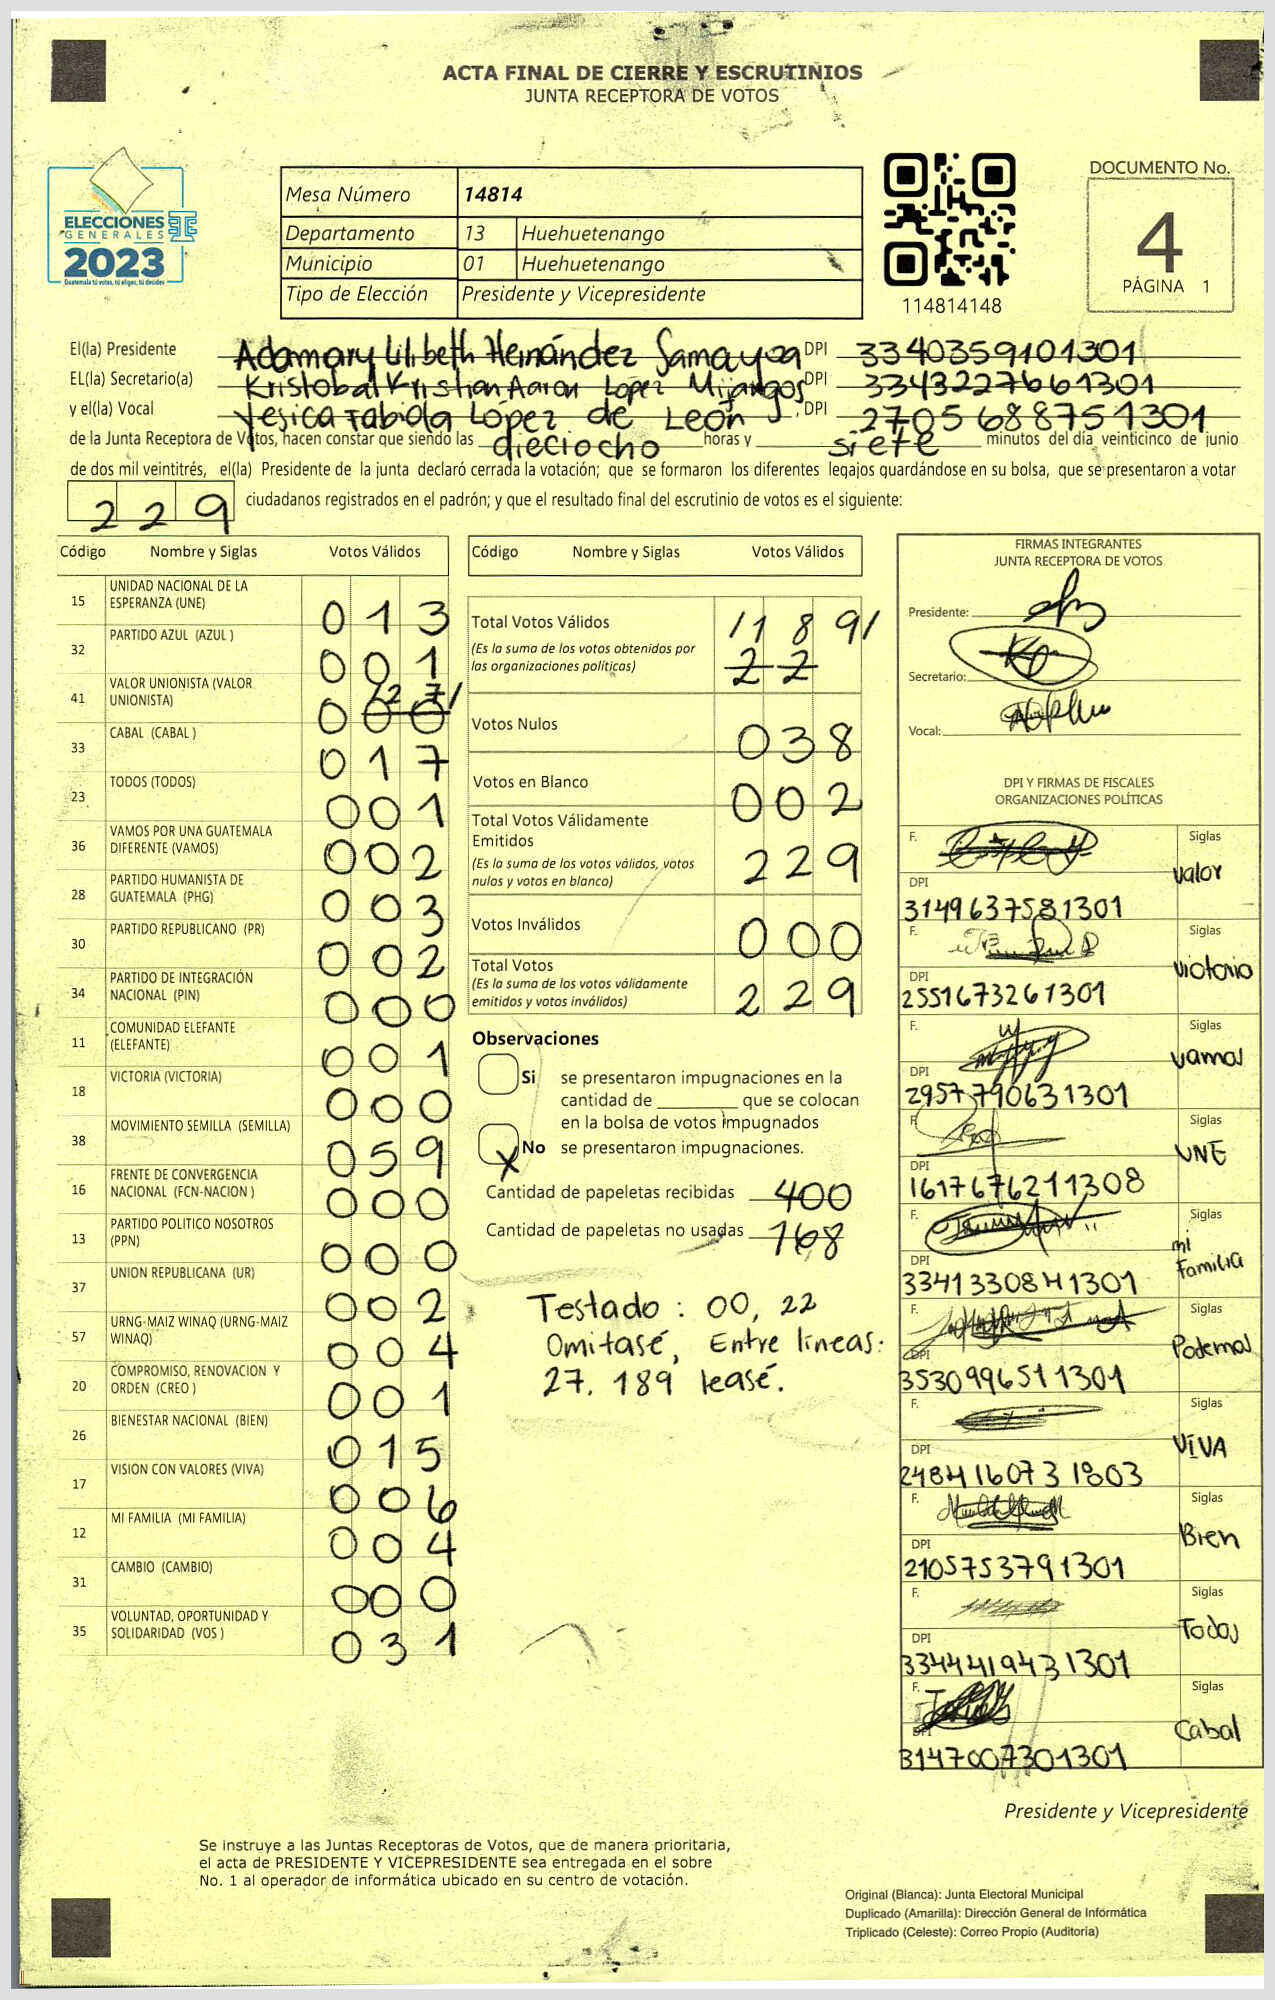 ACTA FINAL DE CIERRE Y ESCRUTINIOS
JUNTA RECEPTORA DE VOTOS
ELECCIONES
GENERALES
2023
Guatemala tú votas, tú eliges, tú decides
Mesa Número 14814
Departamento 13 Huehuetenango
Municipio 01 Huehuetenango
Tipo de Elección Presidente y Vicepresidente
114814148
DOCUMENTO No.
4
PÁGINA 1
El(la) Presidente Adamary Lilibeth Hernández Samayoa DPI 3340359101301
EL(la) Secretario(a) Kristobal Kristian Aaron López Mijangos DPI 3343227661301
y el(la) Vocal Yesica Fabiola López de León . DPI 2705688751301
de la Junta Receptora de Votos, hacen constar que siendo las dieciocho horas y siete minutos del día veinticinco de junio
de dos mil veintitrés, el(la) Presidente de la junta declaró cerrada la votación; que se formaron los diferentes legajos guardándose en su bolsa, que se presentaron a votar
229 ciudadanos registrados en el padrón; y que el resultado final del escrutinio de votos es el siguiente:
Código Nombre y Siglas Votos Válidos
15 UNIDAD NACIONAL DE LA ESPERANZA (UNE) 013
32 PARTIDO AZUL (AZUL ) 001
41 VALOR UNIONISTA (VALOR UNIONISTA) 000 27/
33 CABAL (CABAL ) 017
23 TODOS (TODOS) 001
36 VAMOS POR UNA GUATEMALA DIFERENTE (VAMOS) 002
28 PARTIDO HUMANISTA DE GUATEMALA (PHG) 003
30 PARTIDO REPUBLICANO (PR) 002
34 PARTIDO DE INTEGRACIÓN NACIONAL (PIN) 000
11 COMUNIDAD ELEFANTE (ELEFANTE) 001
18 VICTORIA (VICTORIA) 000
38 MOVIMIENTO SEMILLA (SEMILLA) 059
16 FRENTE DE CONVERGENCIA NACIONAL (FCN-NACION ) 000
13 PARTIDO POLITICO NOSOTROS (PPN) 000
37 UNION REPUBLICANA (UR) 002
57 URNG-MAIZ WINAQ (URNG-MAIZ WINAQ) 004
20 COMPROMISO, RENOVACION Y ORDEN (CREO ) 001
26 BIENESTAR NACIONAL (BIEN) 015
17 VISION CON VALORES (VIVA) 006
12 MI FAMILIA (MI FAMILIA) 004
31 CAMBIO (CAMBIO) 000
35 VOLUNTAD, OPORTUNIDAD Y SOLIDARIDAD (VOS ) 031
Código Nombre y Siglas Votos Válidos
Total Votos Válidos /189/
(Es la suma de los votos obtenidos por
las organizaciones políticas) 22
Votos Nulos 038
Votos en Blanco 002
Total Votos Válidamente
Emitidos
(Es la suma de los votos válidos, votos
nulos y votos en blanco) 229
Votos Inválidos 000
Total Votos
(Es la suma de los votos válidamente
emitidos y votos inválidos) 229
Observaciones
Si se presentaron impugnaciones en la
cantidad de ________ que se colocan
en la bolsa de votos impugnados
X No se presentaron impugnaciones.
Cantidad de papeletas recibidas 400
Cantidad de papeletas no usadas 168
Testado : 00, 22
Omitasé, Entre lineas:
27. 189 leasé.
FIRMAS INTEGRANTES
JUNTA RECEPTORA DE VOTOS
Presidente:
Secretario:
Vocal:
DPI Y FIRMAS DE FISCALES
ORGANIZACIONES POLÍTICAS
F. Siglas
Valor
DPI
3149637581301
F. Siglas
Victoria
DPI
2551673261301
F. Siglas
Vamos
DPI
2957790631301
F. Siglas
UNE
DPI
1617676211308
F. Siglas
mi
Familia
DPI
3341330841301
F. Siglas
Podemos
DPI
3530996511301
F. Siglas
VIVA
DPI
2484160731803
F. Siglas
Bien
DPI
2105753791301
F. Siglas
Todos
DPI
3344419431301
F. Siglas
Cabal
DPI
3147007301301
Presidente y Vicepresidente
Se instruye a las Juntas Receptoras de Votos, que de manera prioritaria,
el acta de PRESIDENTE Y VICEPRESIDENTE sea entregada en el sobre
No. 1 al operador de informática ubicado en su centro de votación.
Original (Blanca): Junta Electoral Municipal
Duplicado (Amarilla): Dirección General de Informática
Triplicado (Celeste): Correo Propio (Auditoría)